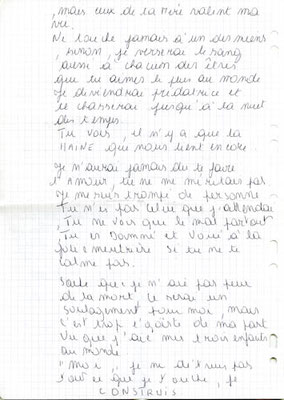 , mais ceux de ta mère valent ma
vie.
Ne touche jamais à un des miens
, sinon, je verserai le sang
aussi à chacun des êtres
que tu aimes le plus au monde
je deviendrai prédatrice et
te chasserai jusqu'à la nuit
des temps.
Tu vois, il n'y a que la
HAINE qui nous tient encore.
Je n'aurai jamais du te faire
l'amour, tu ne me méritais pas
Je me suis trompé de personne
Tu n'es pas celui que j'attendai
, Tu ne vois que le mal partout
Tu es Damné et Voué à la
folie meurtrière si tu ne te
calme pas.
Sache que je n'ai pas peur
de la mort, ce serai un
soulagement pour moi, mais
c'est trop égoïste de ma part
vu que j'ai mes trois enfants
au monde
"Moi", je ne détruis pas
tout ce que je touche, je
CONSTRUIS